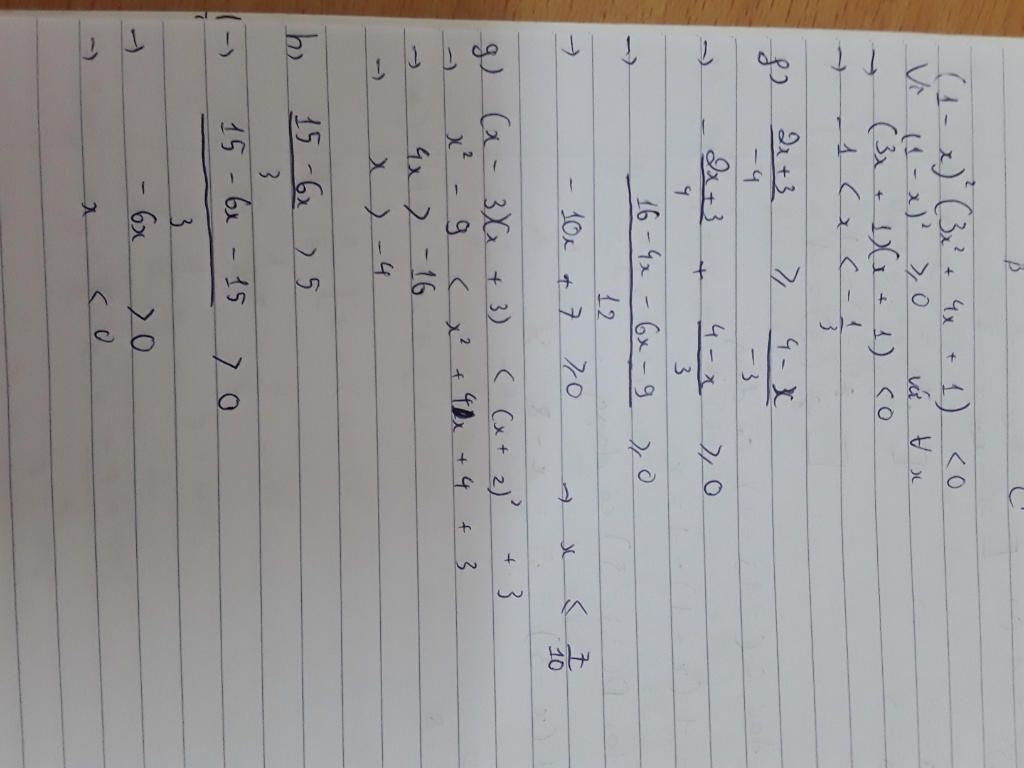 B C
(1 - x)² (3x² + 4x + 1) < 0
Vì (1 - x)² ≥ 0 với ∀ x
→ (3x + 1)(x + 1) < 0
→ -1 < x < -1/3
g) (2x+3)/-4 ≥ (4-x)/-3
→ -(2x+3)/4 + (4-x)/3 ≥ 0
→ (16 - 4x - 6x - 9)/12 ≥ 0
→ -10x + 7 ≥ 0 → x ≤ 7/10
g) (x - 3)(x + 3) < (x + 2)² + 3
→ x² - 9 < x² + 4x + 4 + 3
→ 4x > -16
→ x > -4
h) (15 - 6x)/3 > 5
(→ (15 - 6x - 15)/3 > 0
→ -6x > 0
→ x < 0